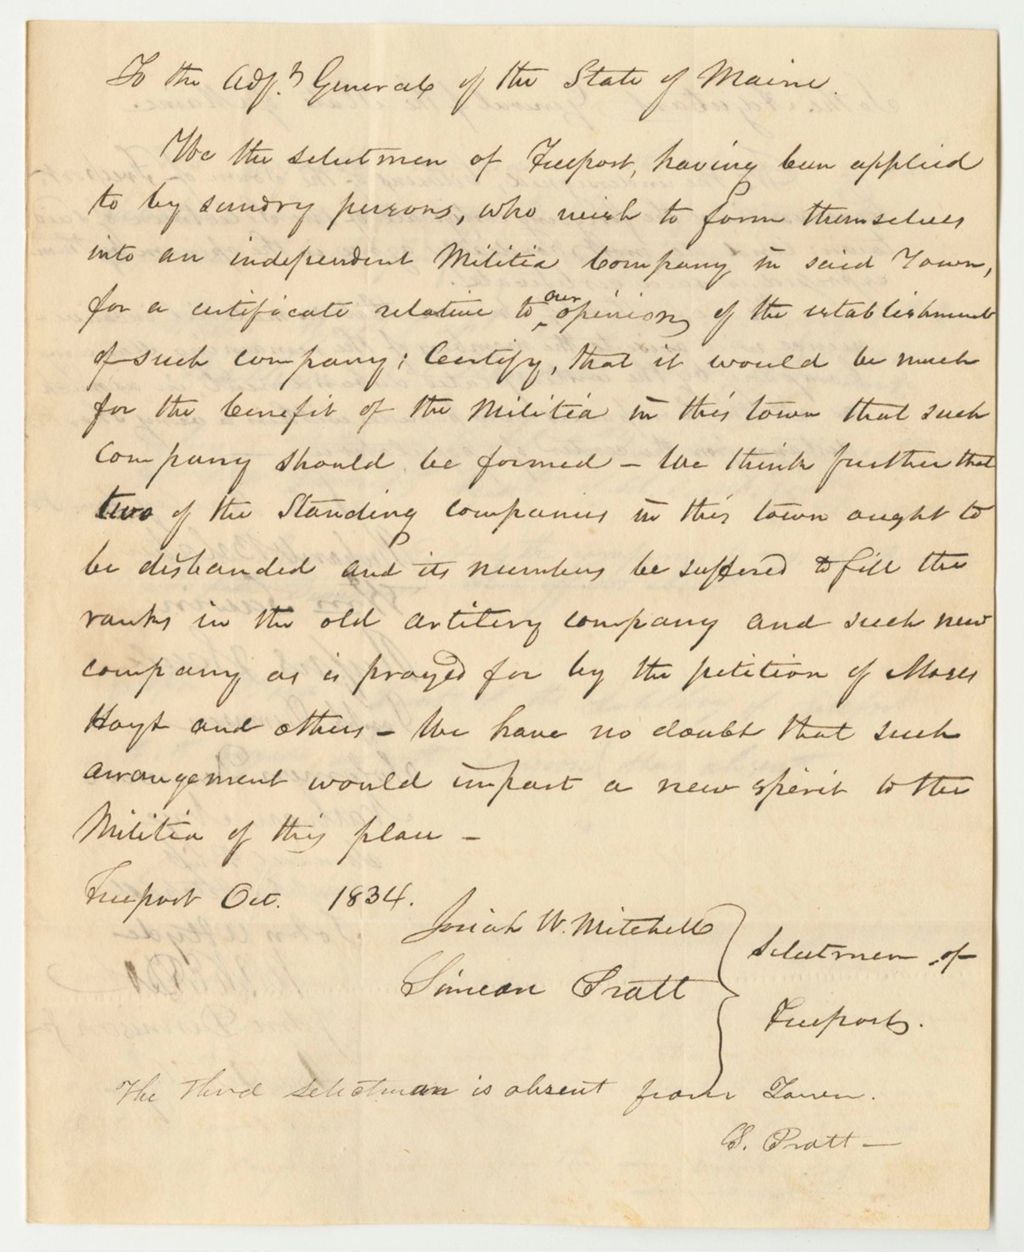 To the Adjt General of the State of Maine.
We the selectmen of Freeport, having been applied
to by sundry persons, who wish to form themselves
into an independent Militia Company in said Town,
for a certificate relative to our opinion of the establishment
of such company; Certify, that it would be much
for the benefit of the Militia in this town that such
Company should be formed – We think further that
two of the Standing companies in this town ought to
be disbanded and its numbers be suffered to fill the
ranks in the old artillery company and such new
company as is prayed for by the petition of Moses
Hoyt and others – We have no doubt that such
arrangement would impart a new spirit to the
Militia of this place –
Freeport Oct. 1834.
Josiah W. Mitchell
Simeon Pratt
Selectmen of
Freeport.
The third selectman is absent from Town.
S. Pratt –